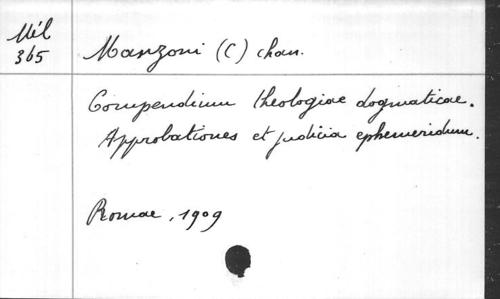 Mél
365
Manzoni (C) chan.
Compendium theologiae dogmaticae.
Approbationes et judicia ephemeridum.
Romae, 1909